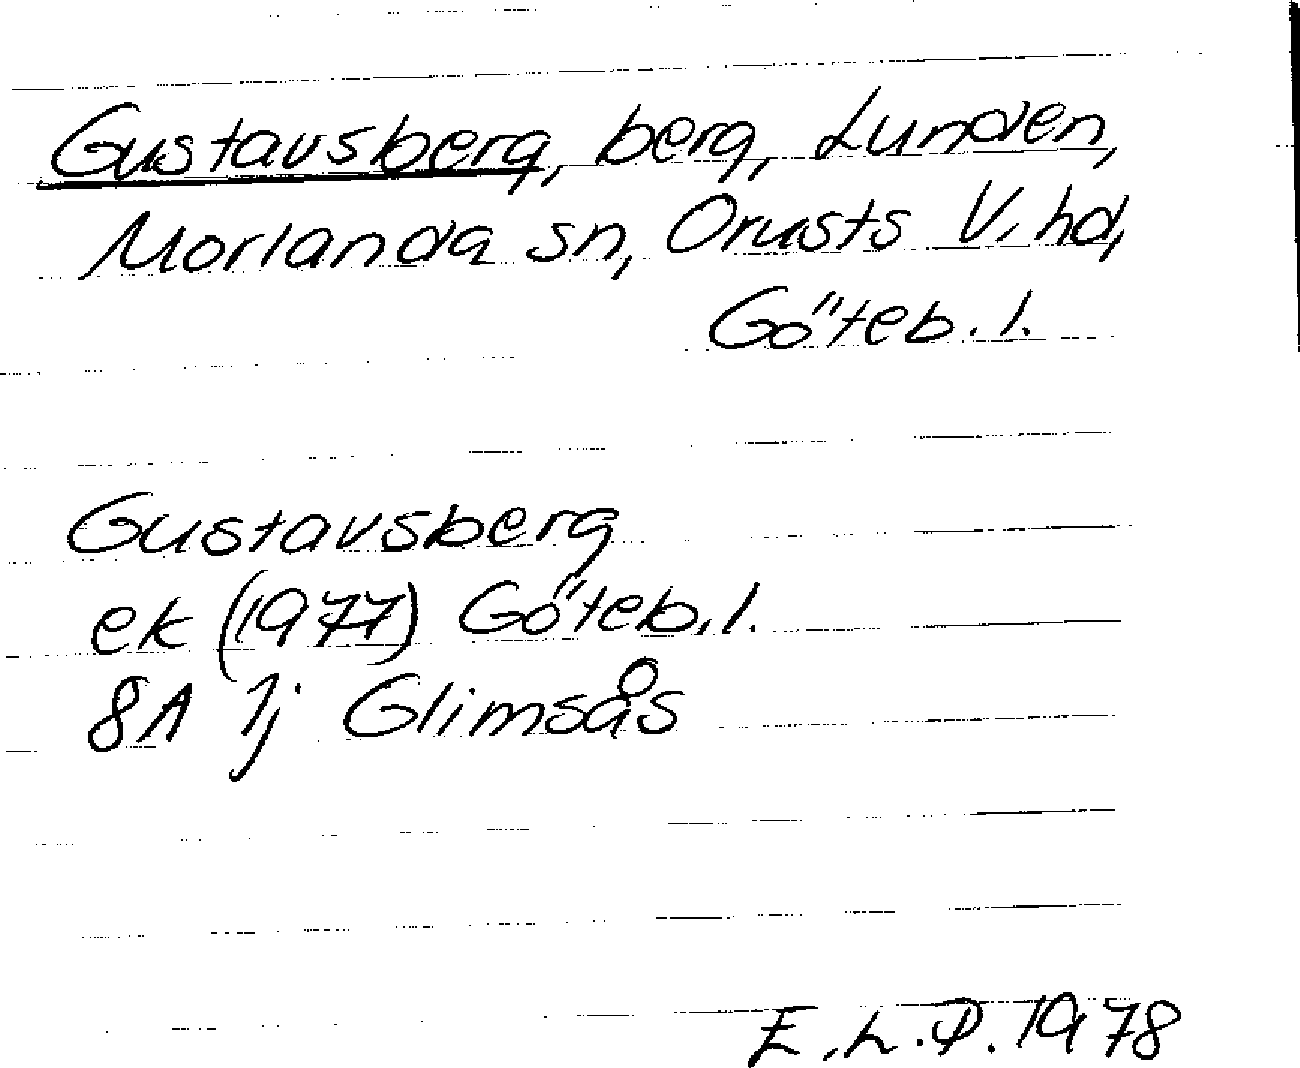 Gustavsberg, berg, Lunden,
Morlanda sn, Orusts V. hd,
Göteb. l.
Gustavsberg
ek (1977) Göteb. l.
8A 1j Glimsås
E.L.P. 1978